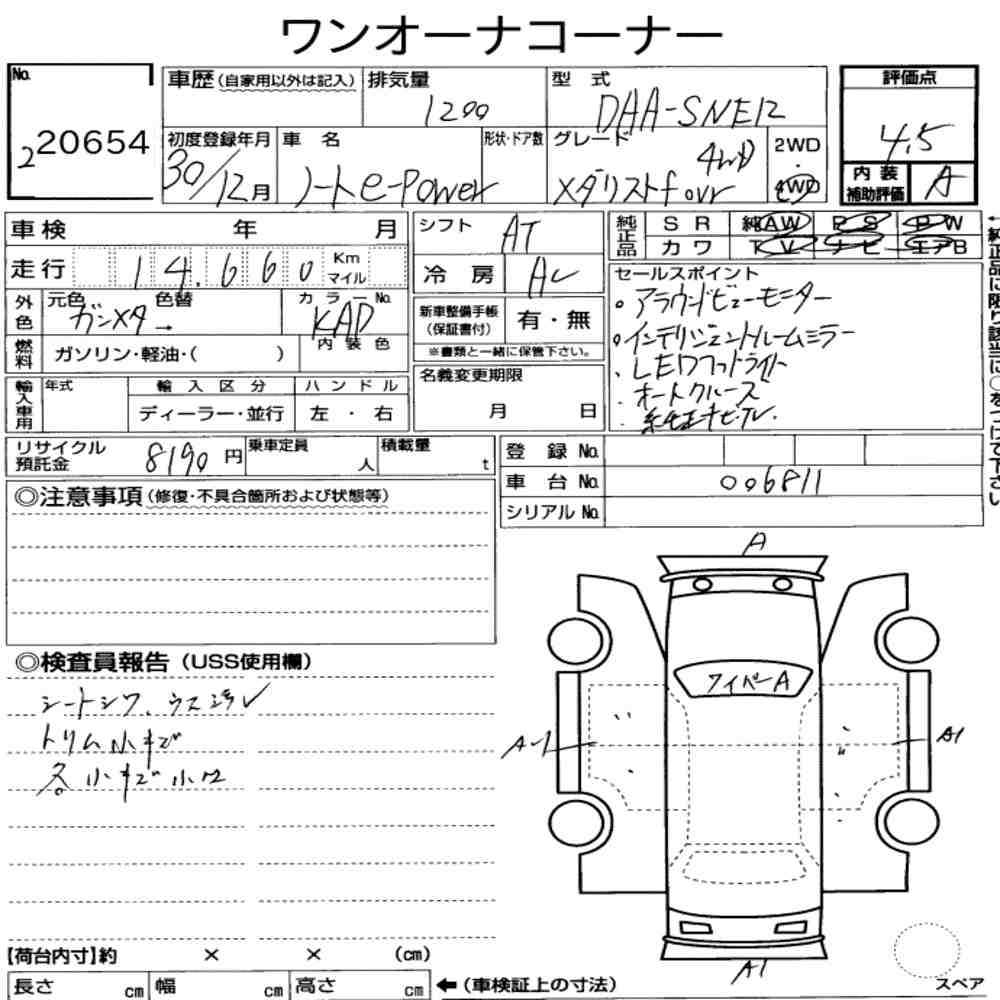 ワンオーナコーナー
No.
220654
車歴(自家用以外は記入)
排気量
1200
型 式
DAA-SNE12
初度登録年月
30/12月
車 名
ノートe-Power
形状・ドア数
グレード
4WD
Xメダリストfour
2WD
・
4WD
評価点
4.5
内装
補助評価
A
車検 年 月
走行 14.660 Km マイル
外色
元色 ガンメタ → 色替
カラーNo.
KAD
内装色
燃料
ガソリン・軽油・( )
輸入車用
年式
輸入区分
ディーラー・並行
ハンドル
左 ・ 右
シフト
AT
冷房
AC
新車整備手帳
(保証書付)
有・無
※書類と一緒に保管下さい。
名義変更期限
月 日
純正品
SR 純AW PS PW
カワ TV ナビ エアB
←純正品に限り該当に○をつけて下さい
セールスポイント
○ アラウンドビューモニター
○インテリジェントルームミラー
・LEDフットライト
・オートクルーズ
・純正ナビTV.
リサイクル
預託金
8190円
乗車定員
人
積載量
t
登録No.
車台No.
006811
シリアルNo.
◎注意事項(修復・不具合箇所および状態等)
◎検査員報告(USS使用欄)
シートシワ、ウス汚レ
トリム小キズ
各小キズ小凹
A
ワイパーA
A-1
A1
A1
スペア
【荷台内寸】約 × × (cm)
長さ cm 幅 cm 高さ cm
←(車検証上の寸法)